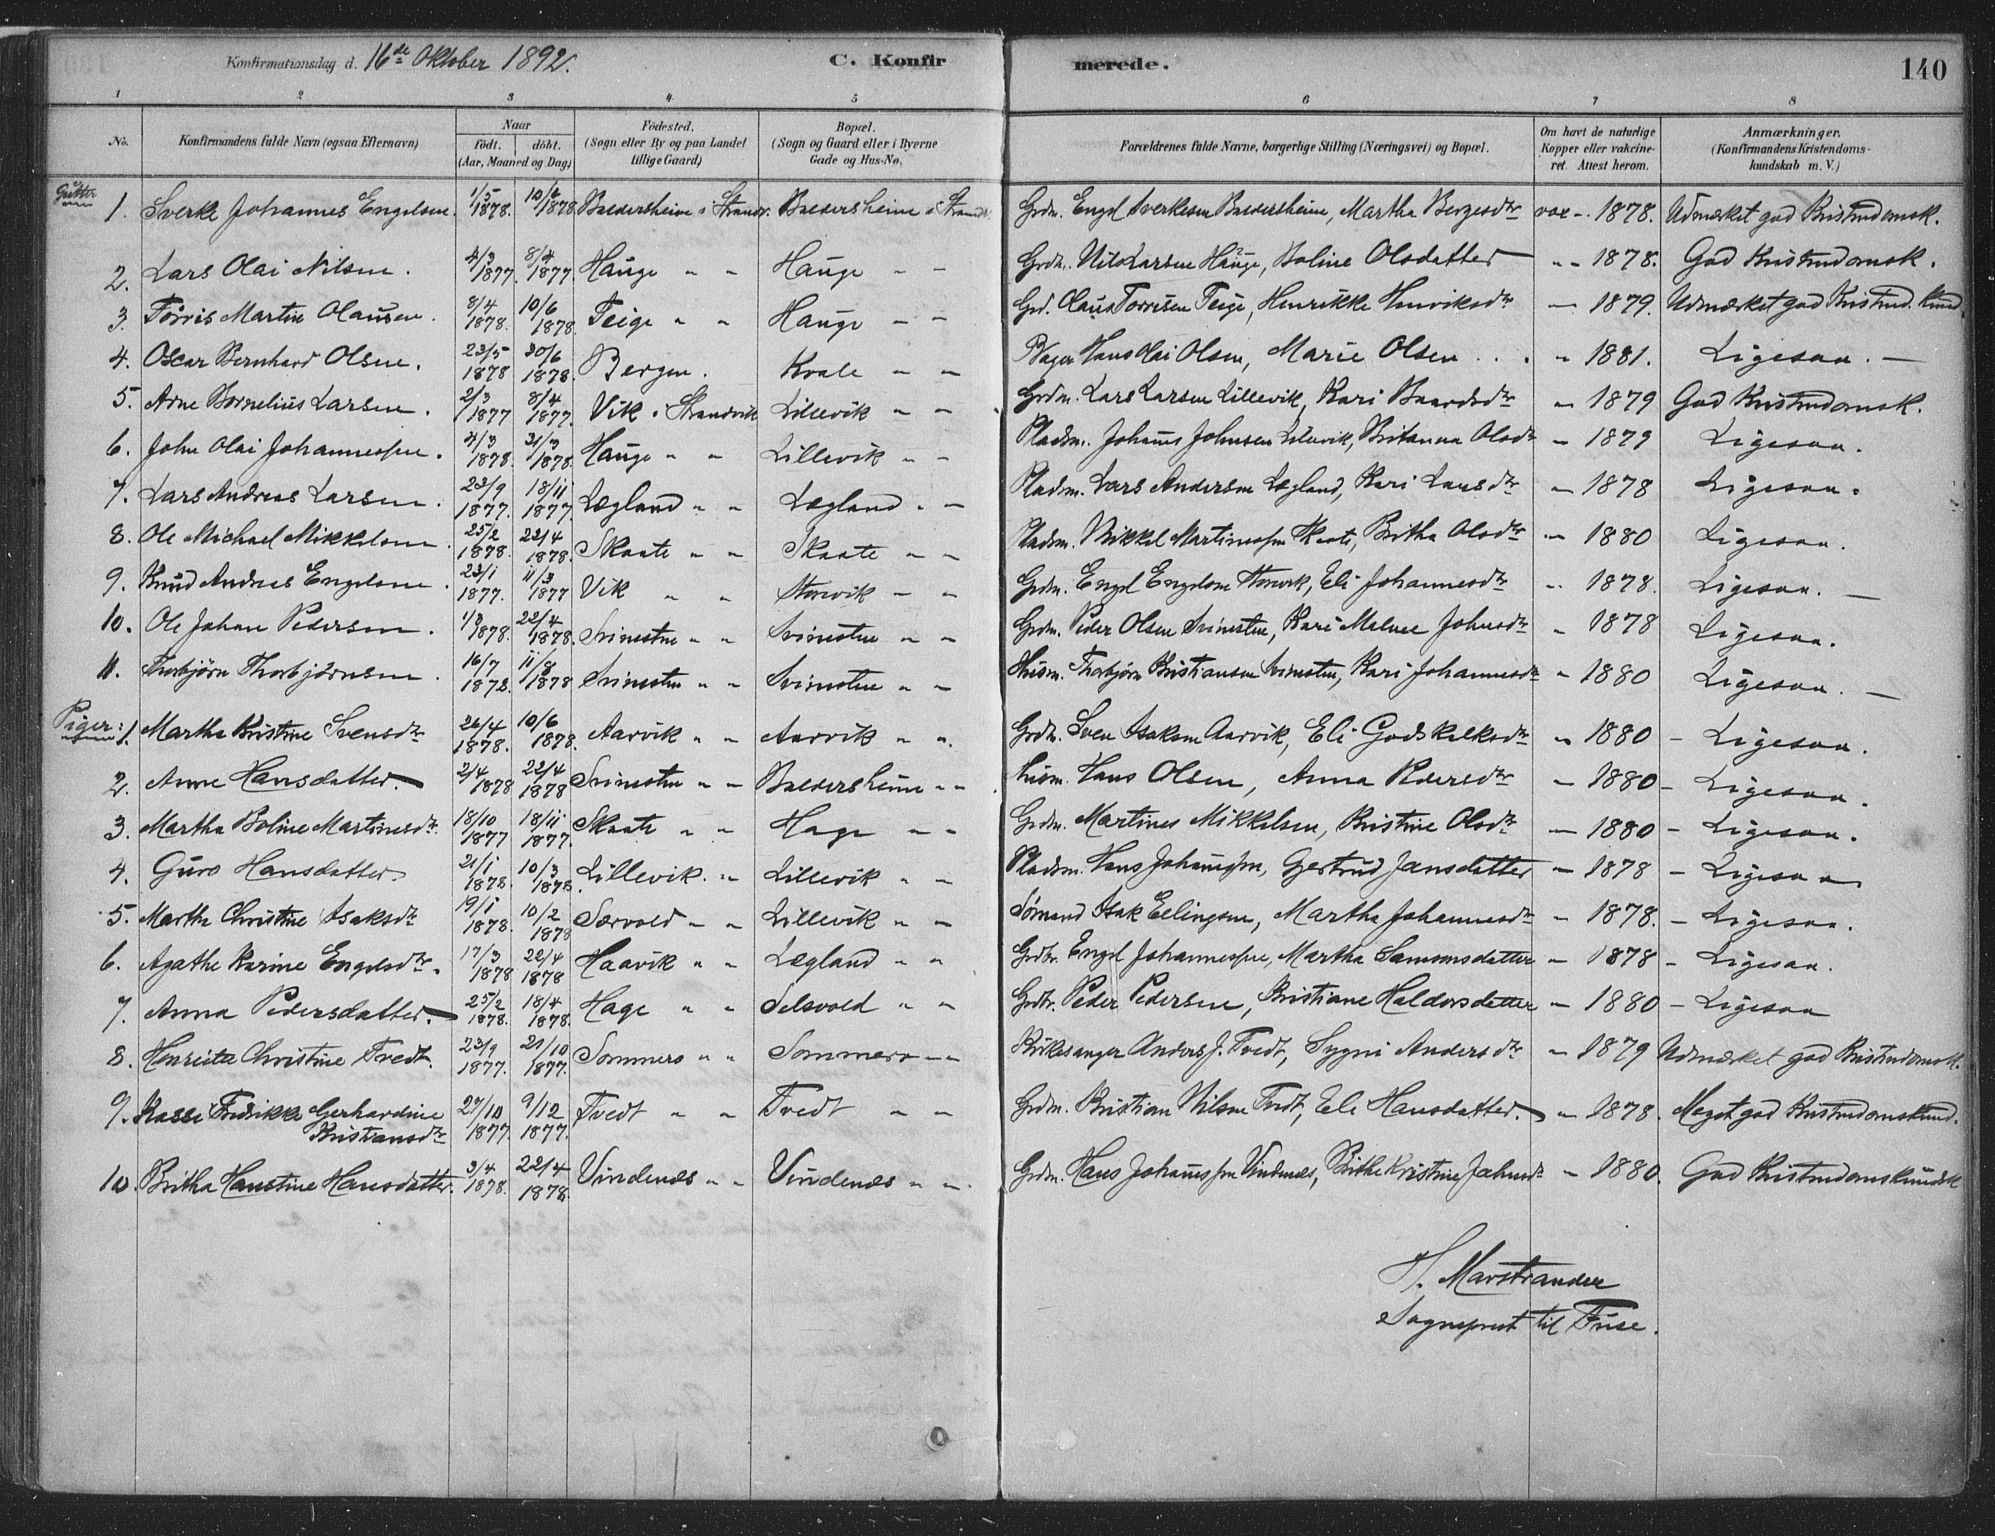 Konfirmationsdag d. 16de Oktober 1892. C. Konfirmerede. 140
1 2 3 4 5 6 7 8
No. Konfirmandens fulde Navn (ogsaa Efternavn) Naar født. døbt. (Aar, Maaned og Dag) Fødested. (Sogn eller By og paa Landet tillige Gaard) Bopæl. (Sogn og Gaard eller i Byerne Gade og Hus-No. Forældrenes fulde Navne, borgerlige Stilling (Næringsvei) og Bopæl. Om havt de naturlige Kopper eller vakcineret. Attest herom. Anmærkninger. (Konfirmandens Kristendomskundskab m. V.)
Gutter
1. Sverke Johannes Engelsen. 1/5 1878. 10/6 1878 Baldersheim i Strandv. Baldersheim i Strandv. Grdm. Engel Sverkesen Baldersheim, Martha Børgesdtr vax - 1878. Udmærket god Kristendomsk.
2. Lars Olai Nilsen. 4/3 1877. 8/4 1877. Hauge " " Hauge " " Grdm. Nils Larsen Hauge, Boline Olsdatter " - 1878. God Kristendomsk.
3. Torris Martin Olausen. 8/4 1878. 10/6 1878. Teige " " Hauge " " Grd. Olaus Torrisen Teige, Henrikke Henriksdtr - 1879. Udmærket god Kristend. kund.
4. Oscar Bernhard Olsen. 23/5 1878 30/6 1878. Bergen. Kvale " " Bager Hans Olai Olsen, Marie Olsen . . . " 1881. Ligesaa. -
5. Arne Kornelius Larsen. 2/3 1877 8/4 1877. Vik i Strandvik Lillevik " " Grdm. Lars Larsen Lillevik, Kari Baardsdtr " 1879 God Kristendomsk.
6. John Olai Johannessen. 4/3 1878. 31/3 1878. Hauge " " Lillevik " " Pladsm. Johannes Johnsen Lillevik, Britanna Olsdtr - 1879 Ligesaa.
7. Lars Andreas Larsen. 23/9 1877. 18/11 1877. Lægland " " Lægland " " Pladsm. Lars Andersen Lægland, Kari Larsdtr " 1878 Ligesaa.
8. Ole Michael Mikkelsen 25/2 1878. 22/4 1878. Skaate " " Skaate " " Pladsm. Mikkel Martinessen Skaate, Britha Olsdtr " 1880 Ligesaa.
9. Knud Andreas Engelsen. 23/1 1877. 11/3 1877 Vik " " Storevik " " Grdm. Engel Engelsen Storevik, Eli Johannesdtr " 1878. Ligesaa. -
10. Ole Johan Pedersen. 1/3 1878. 22/4 1878. Svinesten " " Svinesten " " Grdm. Peder Olsen Svinesten, Kari Malene Johnsdtr " 1878 Ligesaa.
11. Thorbjørn Thorbjørnsen. 16/7 1878. 11/8 1878 Svinesten " " Svinesten " " Husm. Thorbjørn Kristiansen Svinesten, Kari Johannesdtr " 1880 Ligesaa. -
Piger:
1. Martha Kristine Svensdtr. 26/4 1878. 10/6 1878. Aarvik " " Aarvik " " Grdm. Sven Isaksen Aarvik, Eli Godskalksdtr " 1880 - Ligesaa.
2. Anne Hansdatter. 2/4 1878 22/4 1878 Svinesten " " Baldersheim " " Husm. Hans Olsen, Anna Pedersdtr - 1880 - Ligesaa.
3. Martha Boline Martinesdtr. 18/10 1877 18/11 1877. Skaate " " Hage " " Grdm. Martines Mikkelsen, Kristine Olsdtr - 1880 - Ligesaa.
4. Guro Hansdatter. 21/1 1878. 10/3 1878. Lillevik. " Lillevik " " Pladsm. Hans Johannessen, Gjertrud Jansdatter - 1878 - Ligesaa
5. Martha Christine Isaksdtr 19/1 1878. 10/2 1878 Sørvold " " Lillevik " " Sømand Isak Ellingsen, Martha Johannesdtr - 1878. - Ligesaa.
6. Agathe Karine Engelsdtr. 17/3 1878 22/4 1878 Haavik " " Lægland " " Grdbr. Engel Johannessen, Martha Samsonsdatter - 1878 - Ligesaa.
7. Anna Pedersdatter. 25/2 1878. 18/4 1878. Hage " " Selsvold " " Grdbr. Peder Pedersen, Kristiane Haldorsdatter - 1880 - Ligesaa
8. Henrietta Christine Tvedt. 23/9 1877. 21/10 1877. Sommero " " Sommero " " Kirkesanger Anders J. Tvedt, Sygni Andersdtr - 1879 Udmærket god Kristendomsk.
9. Kassi Fredrikke Gerhardine Kristiansdtr 27/10 1877. 9/12 1877. Tvedt " " Tvedt " " Grdm. Kristian Nilsen Tvedt, Eli Hansdatter. " 1878. Meget god Kristendomskund.
10. Britha Hanstine Hansdatter. 3/4 1878. 22/4 1878. Vindenes " " Vindenes " " Grdm. Hans Johannessen Vindenes, Brithe Kristine Johnsdtr - 1880. God Kristendomskundsk
H. Marstrander
Sogneprest til Fuse.